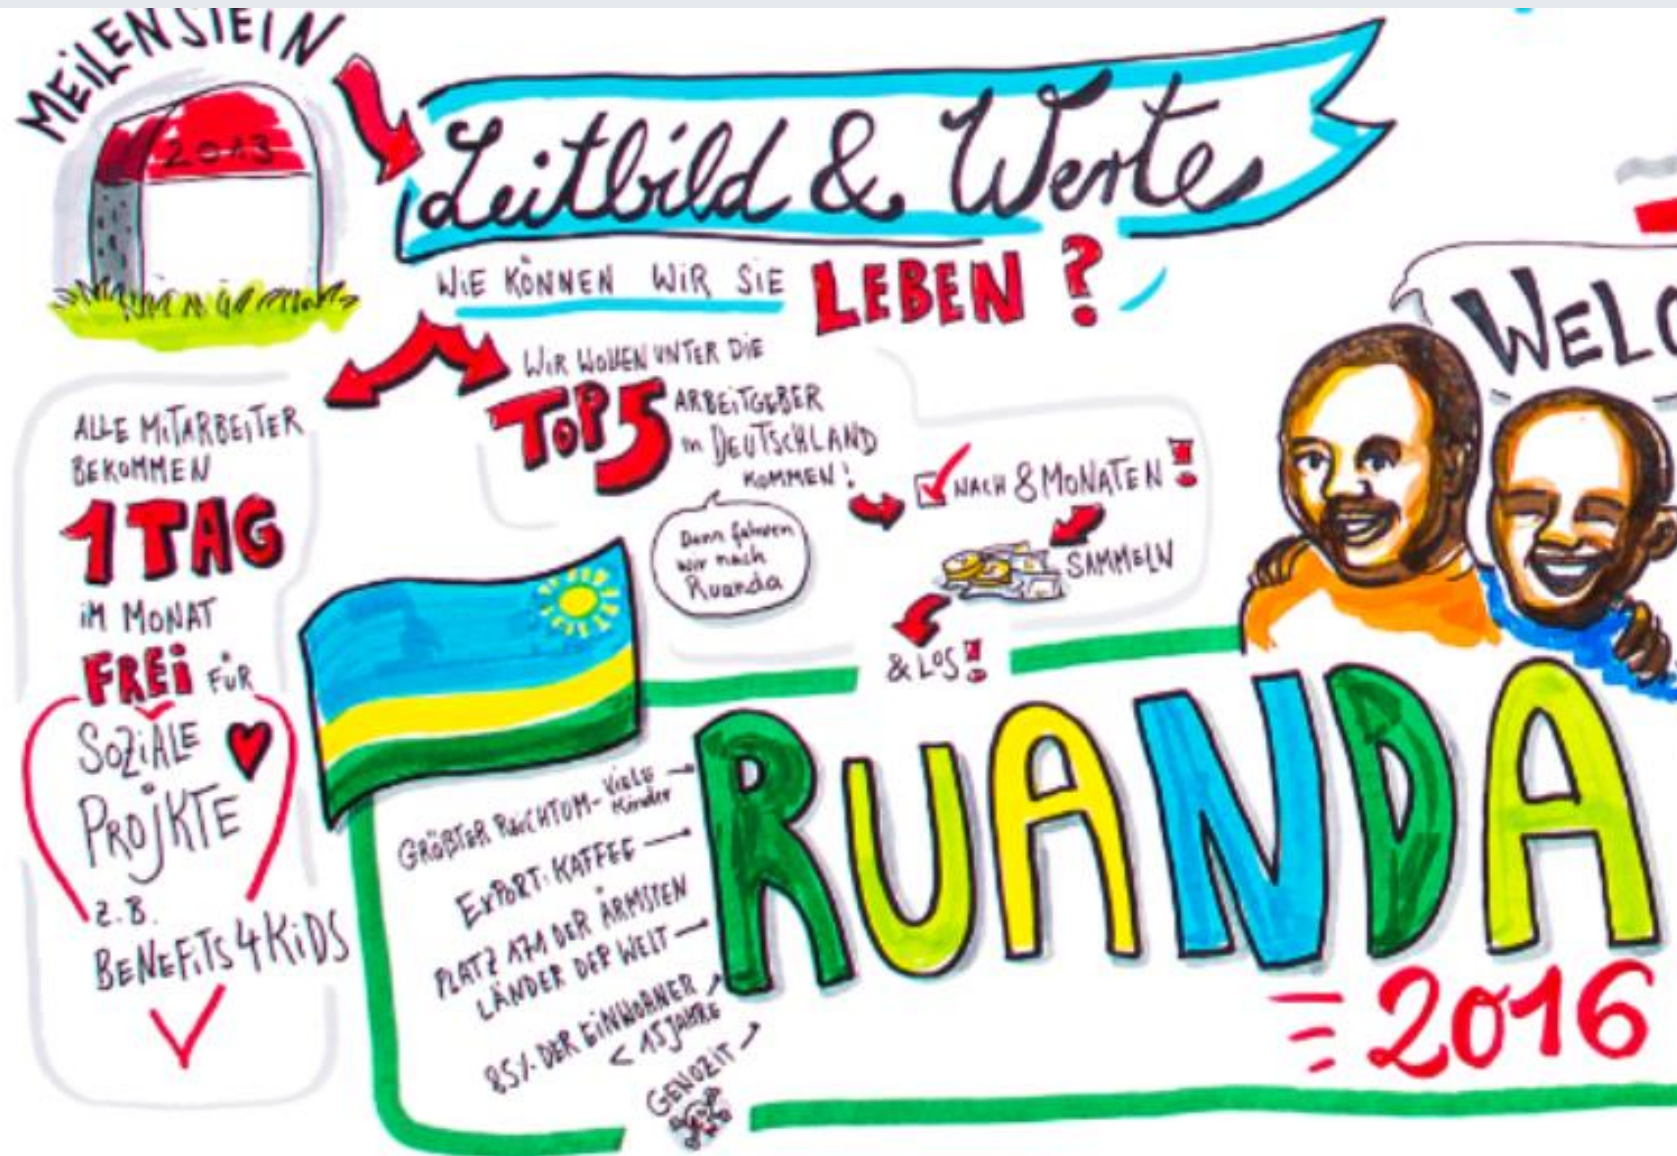 MEILENSTEIN
2013
Leitbild & Werte
WIE KÖNNEN WIR SIE LEBEN?
ALLE MITARBEITER
BEKOMMEN
1 TAG
IM MONAT
FREI FÜR
SOZIALE
PROJKTE
Z.B.
BENEFITS 4 KIDS
WIR WOLLEN UNTER DIE
TOP 5 ARBEITGEBER
in DEUTSCHLAND
KOMMEN!
Dann fahren
wir nach
Ruanda
NACH 8 MONATEN!
SAMMELN
& LOS!
WELC
RUANDA
2016
GRÖßTER REICHTUM - Viele
Kinder
EXPORT: KAFFEE
PLATZ 171 DER ÄRMSTEN
LÄNDER DER WELT
85% DER EINWOHNER
< 15 JAHRE
GENOZIT